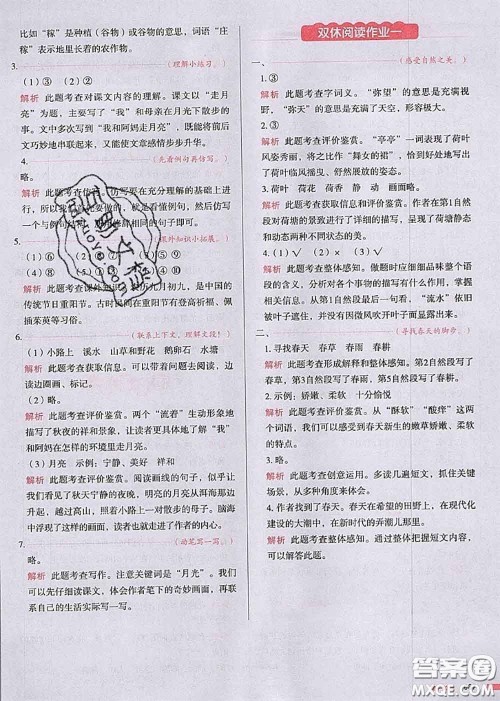 比如“稼”是种植（谷物）或谷物的意思，词语“庄
稼”表示地里长着的农作物。
3.（理解小练习。）
（1）①③　（2）①
解析 此题考查对课文内容的理解。课文以“走月
亮”为题，主要写了“我”和母亲在月光下散步的事
情。文中多次写到“我和阿妈走月亮”，既能将前后
文巧妙地串联起来，又能使文章感情步步升华。
4.（先看例句再仿写。）
略。
解析 仿写要在充分理解的基础上进
行，看懂例句，然后仿写
一个与例句的句子即可。
5.（课外知识小拓展。）
（1）⑤　（2）⑥
解析 此题考查课外知识。农历九月初九，是中国的
传统节日重阳节。古时候在重阳节有登高祈福、佩
插茱萸等习俗。
6.（联系上下文，理解文段！）
（1）小路上　溪水　山草和野花　鹅卵石　水塘
解析 此题考查获取信息。可以带着问题去阅读，边
读边圈画，标记。
（2）略。
解析 此题考查评价鉴赏。两个“流着”生动形象地
描写了秋夜的祥和景象，让读者更具体地了解“我”
和阿妈在怎样的环境里走月亮。
（3）月光　示例：宁静、美好　祥和
解析 此题考查评价鉴赏。阅读画线的句子，似乎让
我们看见天空宁静的夜晚，明亮的月亮从洱海那边
升起来，照和小路上一对散步的母子。脑海
中浮现了这样的画面，读者也就走进了作者的内心。
7.（动笔写一写。）
略。
解析 此题考查写作。注意关键词是“月光”。我们
可以先仔细读课文，体会作者笔下的奇妙画面，再
联系自己的生活实际写一写。
双休阅读作业一
一、（感受自然之美。）
1. ③
解析 此题考查字词词义。“弥望”的意思是充满视
野，“弥天”的意思是充满了天空，形容极大。
2. ③
解析 此题考查评价鉴赏。“亭亭”一词表现了荷叶
风姿秀丽，后面的比喻“舞女的裙”，恰到好处地写
出了荷叶临风摇曳、舒然展放的动态。
3. 荷叶　荷花　荷香　静　动　画面略。
解析 此题考查获取信息和评价鉴赏。作者在第1自
然段对荷塘的景致进行了详细的描写，呈现了荷塘静态
和动态两种不同状态的美。
4. ③
解析 此题考查整体感知。做题时应细细品味整个
语段，分析对各个事物的描写有什么作用，掌握
相关信息。从第1自然段最后一句话，“流水”依旧
被叶子遮住，并没有因微风吹开叶子而显露出来。
二、（寻找春天的脚步。）
1. 寻找春天　春草　春花　春耕
解析 此题考查形成解释和整体感知。第2自然段写了
春草，第3自然段写了春花，第5自然段写了春耕。
2. 示例：欣喜　柔软　十分愉悦
解析 此题考查评价鉴赏。从“酥软”“酸痒”这两
个词语，我们可以感受到春天新生的嫩草娇嫩，柔软
的特点。
3. 略。
解析 此题考查创意运用。多读几遍短文，抓住关键
场景，想象画面。
4. 作者找到了春天。春天在希望的田野上，在现代化
建设的大潮中，在新时代的弄潮儿那里。
解析 此题考查整体感知。通过整体把握短文内容，可
以解答此题。
答案圈
MXQE.COM